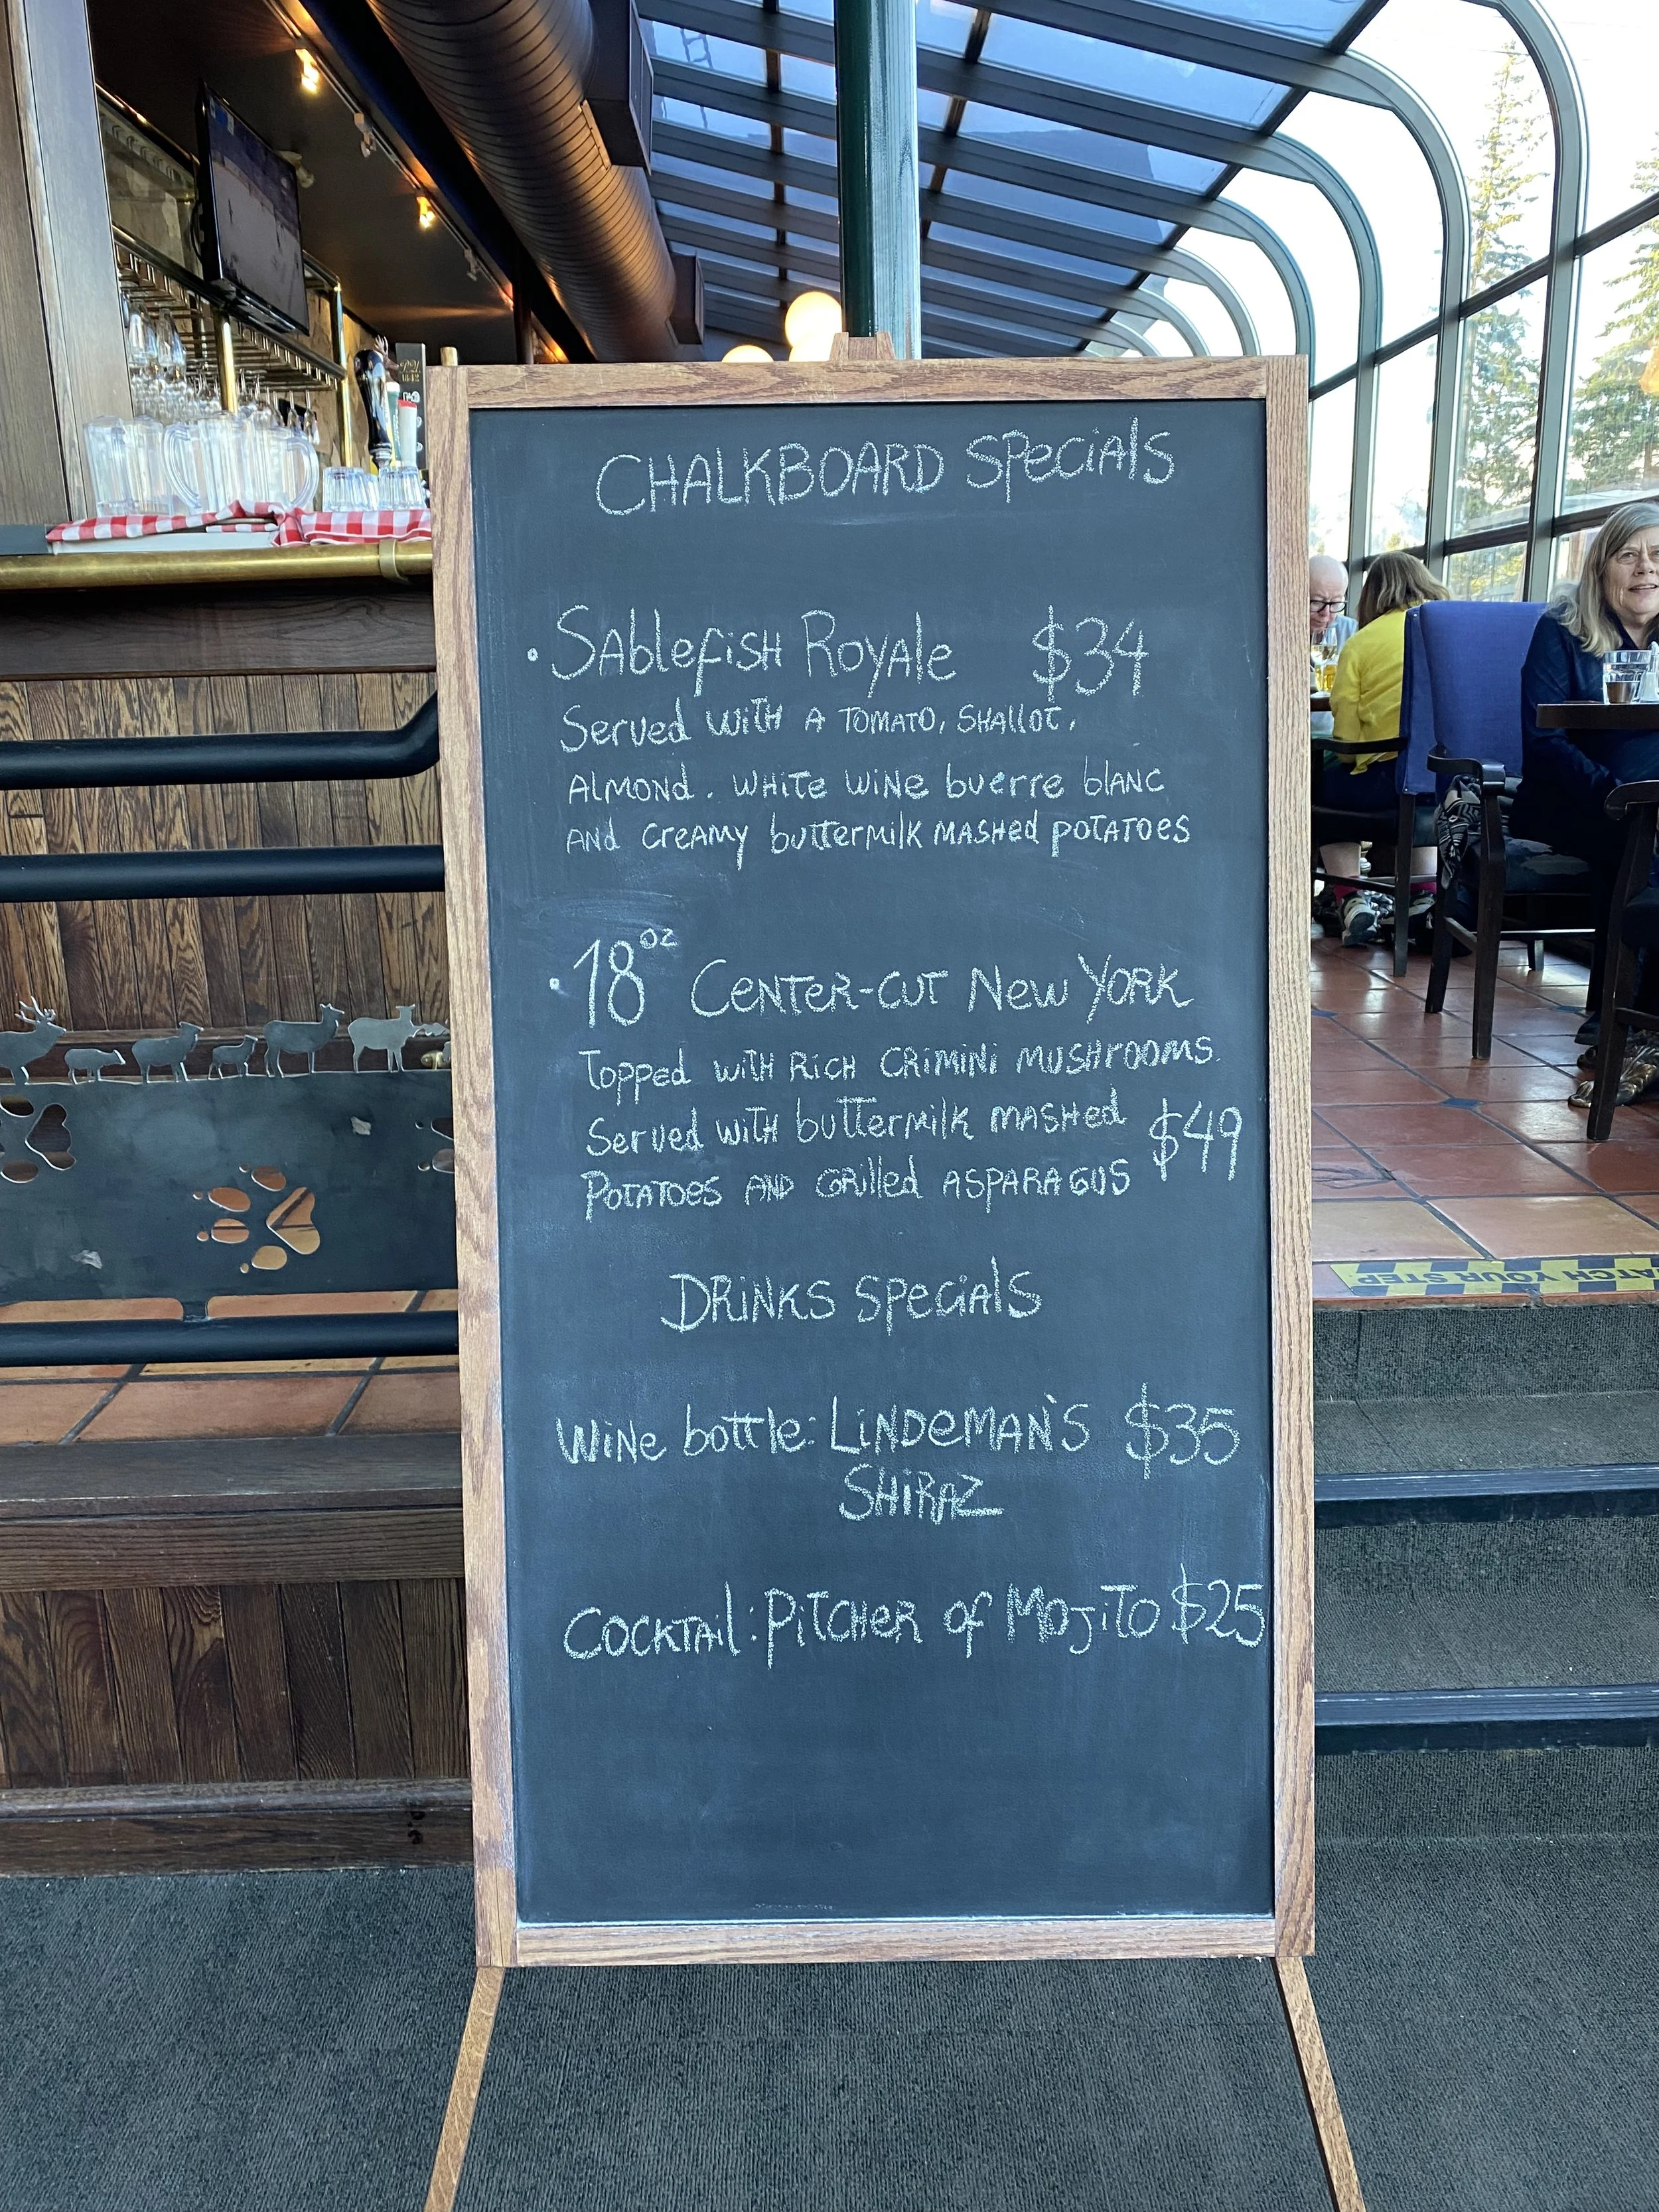 CHALKBOARD SPECIALS
• SABLEFISH ROYALE $34
SERVED WITH A TOMATO, SHALLOT,
ALMOND. WHITE WINE BUERRE BLANC
AND CREAMY BUTTERMILK MASHED POTATOES
• 18 OZ CENTER-CUT NEW YORK
TOPPED WITH RICH CRIMINI MUSHROOMS.
SERVED WITH BUTTERMILK MASHED
$49
POTATOES AND GRILLED ASPARAGUS
DRINKS SPECIALS
WINE BOTTLE: LINDEMAN'S $35
SHIRAZ
COCKTAIL: PITCHER OF MOJITO $25
WATCH YOUR STEP